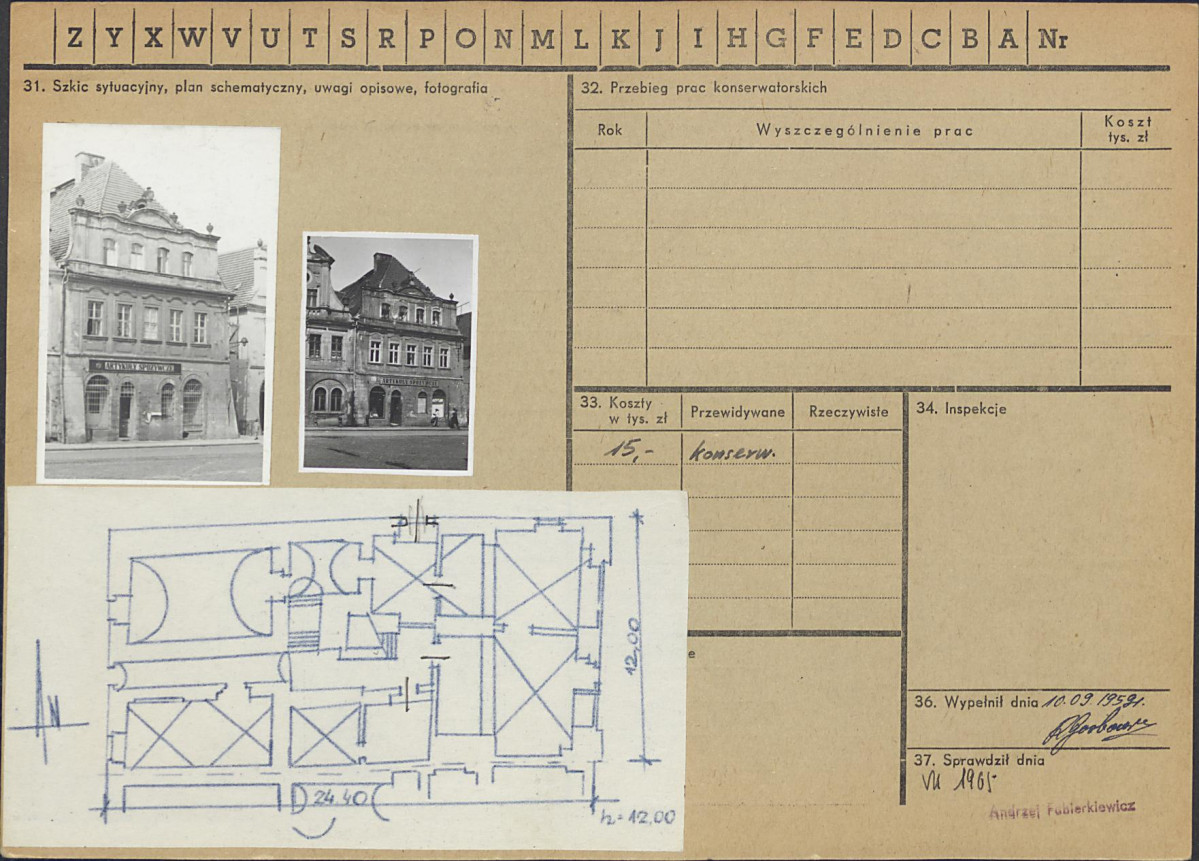 Z Y X W V U T S R P O N M L K J I H G F E D C B A Nr
31. Szkic sytuacyjny, plan schematyczny, uwagi opisowe, fotografia
ARTYKUŁY SPOŻYWCZE
12,00
N
24.40
h=12,00
32. Przebieg prac konserwatorskich
Rok Wyszczególnienie prac Koszt tys. zł
33. Koszty w tys. zł Przewidywane Rzeczywiste
15,- konserw.
e
34. Inspekcje
36. Wypełnił dnia 10.09.1959r.
37. Sprawdził dnia
VII 1965
Andrzej Fabierkiewicz